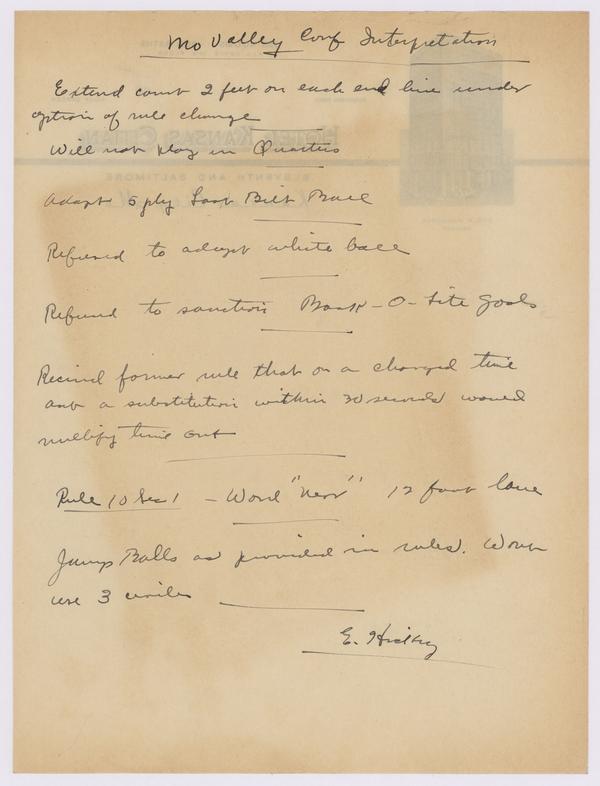 Mo Valley Conf Interpretation
Extend court 2 feet on each end line under
option of rule change
Will not play in Quarters
Adopt 5 ply Last Bilt Ball
Refused to adopt white ball
Refused to sanction Bank-O-Lite Goals
Recind former rule that on a charged time
out a substitution within 30 seconds would
nullify time out
Rule 10 Sec 1 - Word "near" 12 foot lane
Jump Balls as provided in rules. Wont
use 3 circles
E. Hickey
HOTEL KANSAS CITIAN
ELEVENTH AND BALTIMORE